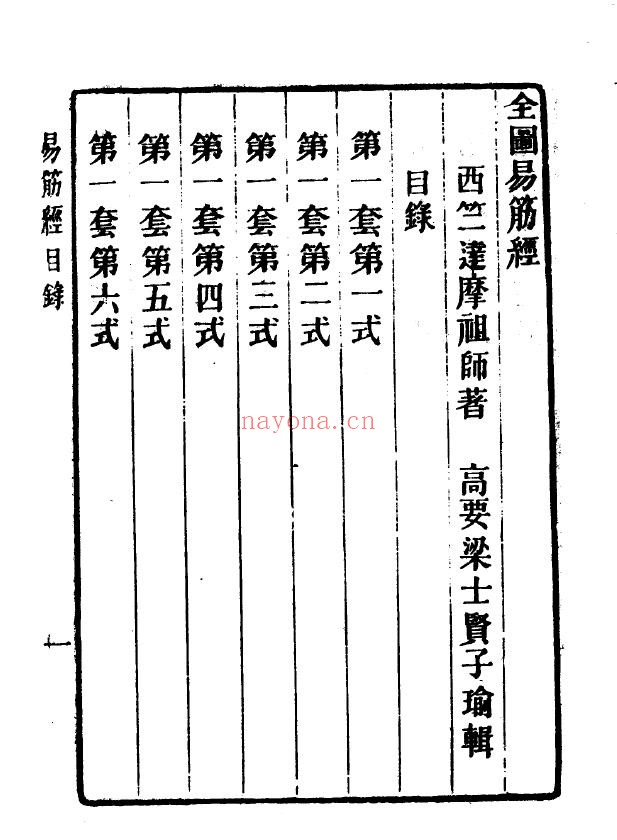 全圖易筋經
西竺達摩祖師著　高要梁士賢子瑜輯
目錄
第一套第一式
第一套第二式
第一套第三式
第一套第四式
第一套第五式
第一套第六式
易筋經目錄
一
nayona.cn